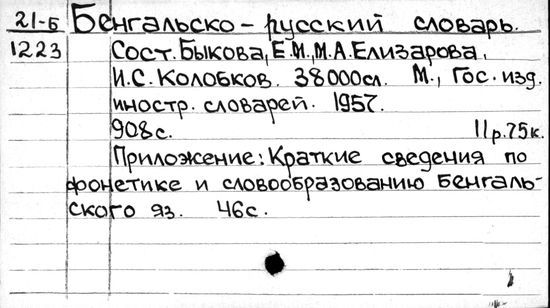 21-Б Бенгальско-русский словарь.
1223 Сост. Быкова, Е.М., М.А. Елизарова,
И.С. Колобков. 38000сл. М., Гос. изд.
иностр. словарей. 1957.
908с. 11р.75к.
Приложение: Краткие сведения по
фонетике и словообразованию бенгаль-
ского яз. 46с.